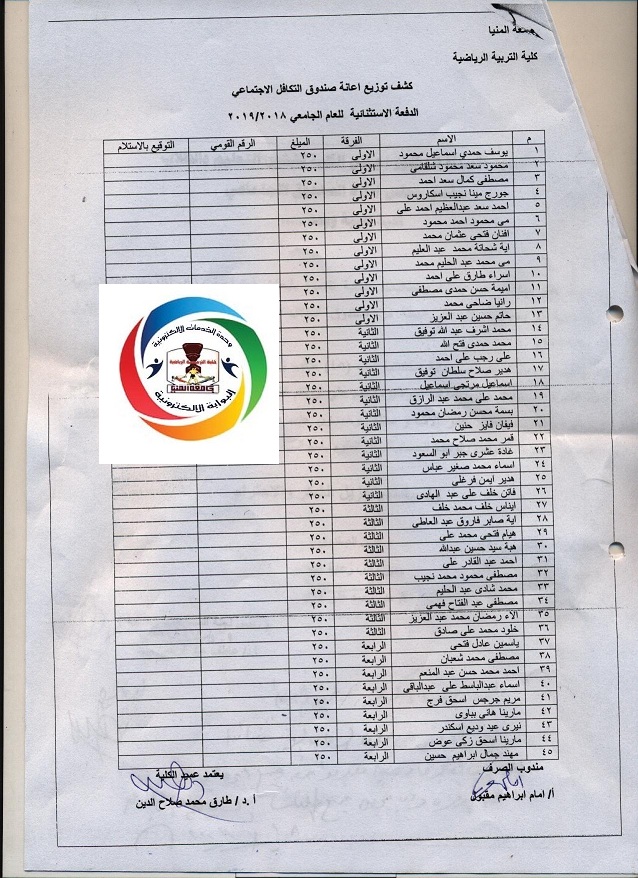 جامعة المنيا
كلية التربية الرياضية
كشف توزيع اعانة صندوق التكافل الاجتماعي
الدفعة الاستثنائية للعام الجامعي ٢٠١٩/٢٠١٨
م الاسم الفرقة المبلغ الرقم القومي التوقيع بالاستلام
١ يوسف حمدي اسماعيل محمود الاولى ٢٥٠
٢ محمود سعد محمود شلقامي الاولى ٢٥٠
٣ مصطفى كمال سعد احمد الاولى ٢٥٠
٤ جورج مينا نجيب اسكاروس الاولى ٢٥٠
٥ احمد سعد عبدالعظيم احمد على الاولى ٢٥٠
٦ مى محمود احمد محمود الاولى ٢٥٠
٧ افنان فتحى عثمان محمد الاولى ٢٥٠
٨ اية شحاتة محمد عبد العليم الاولى ٢٥٠
٩ مى محمد عبد الحليم محمد الاولى ٢٥٠
١٠ اسراء طارق على احمد الاولى ٢٥٠
١١ اميمة حسن حمدى مصطفى الاولى ٢٥٠
١٢ رانيا ضاحى محمد الاولى ٢٥٠
١٣ حاتم حسين عبد العزيز الاولى ٢٥٠
١٤ محمد اشرف عبد الله توفيق الثانية ٢٥٠
١٥ محمد حمدى فتح الله الثانية ٢٥٠
١٦ على رجب على احمد الثانية ٢٥٠
١٧ هدير صلاح سلطان توفيق الثانية ٢٥٠
١٨ اسماعيل مرتجى اسماعيل الثانية ٢٥٠
١٩ محمد على محمد عبد الرازق الثانية ٢٥٠
٢٠ بسمة محسن رمضان محمود الثانية ٢٥٠
٢١ فيفان فايز حنين الثانية ٢٥٠
٢٢ قمر محمد صلاح محمد الثانية ٢٥٠
٢٣ غادة عشرى جبر ابو السعود الثانية ٢٥٠
٢٤ اسماء محمد صغير عباس الثانية ٢٥٠
٢٥ هدير ايمن فرغلى الثانية ٢٥٠
٢٦ فاتن خلف على عبد الهادى الثانية ٢٥٠
٢٧ ايناس خلف محمد خلف الثالثة ٢٥٠
٢٨ اية صابر فاروق عبد العاطى الثالثة ٢٥٠
٢٩ هيام فتحى محمد على الثالثة ٢٥٠
٣٠ هبة سيد حسين عبدالله الثالثة ٢٥٠
٣١ احمد عبد القادر على الثالثة ٢٥٠
٣٢ مصطفى محمود محمد نجيب الثالثة ٢٥٠
٣٣ محمد شادى عبد الحليم الثالثة ٢٥٠
٣٤ مصطفى عبد الفتاح فهمى الثالثة ٢٥٠
٣٥ الاء رمضان محمد عبد العزيز الثالثة ٢٥٠
٣٦ خلود محمد على صادق الثالثة ٢٥٠
٣٧ ياسمين عادل فتحى الرابعة ٢٥٠
٣٨ مصطفى محمد شعبان الرابعة ٢٥٠
٣٩ احمد محمد حسن عبد المنعم الرابعة ٢٥٠
٤٠ اسماء عبدالباسط على عبدالباقى الرابعة ٢٥٠
٤١ مريم جرجس اسحق فرج الرابعة ٢٥٠
٤٢ مارينا هانى بباوى الرابعة ٢٥٠
٤٣ نيرى عيد وديع اسكندر الرابعة ٢٥٠
٤٤ مارينا اسحق زكى عوض الرابعة ٢٥٠
٤٥ مهند جمال ابراهيم حسين الرابعة ٢٥٠
مندوب الصرف يعتمد عميد الكلية
أ/ امام ابراهيم مقبول أ.د/ طارق محمد صلاح الدين
وحدة الخدمات الالكترونية
كلية التربية الرياضية
جامعة المنيا
البوابة الالكترونية